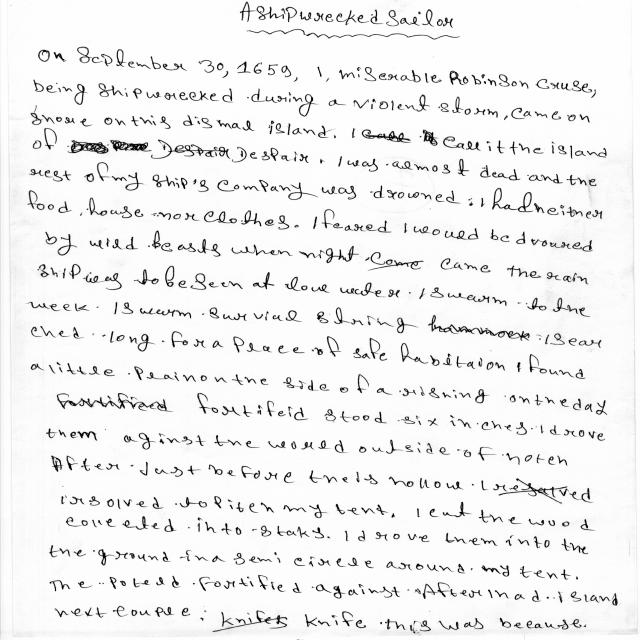 A Shipwrecked Sailor
On September 30, 1659, I, miserable Robinson Cruse,
being shipwrecked during a violent storm, came on
shore on this dismal island. I call it the island
of Despair Despair. I was almost dead and the
rest of my ship's company was drowned: I had neither
food, house nor clothes. I feared I would be dvoured
by wild beasts when night came came the rain
ship was to be seen at low water. I swarm to the
week. I swarm survial string hammock: I sear
ched long for a place of safe habitaion I found
a little plain on the side of a rishing on the day
fortified fortifeid stood six inches. I drove
them against the would outside of notch
After Just before theis hollow I resolved
irsolved to pitch my tent. I cut the wood
collected into staks. I drove them into the
the ground in a semi circle around my tent.
The fortified against After had island
next couple: knifes knife this was because.